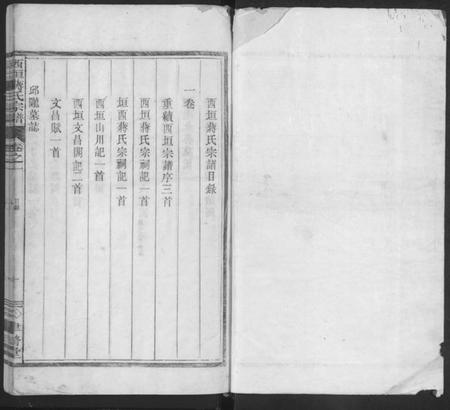 西垣蔣氏宗譜目錄
一卷
重續西垣宗譜序三首
西垣蔣氏宗祠記一首
垣西蔣氏宗祠記一首
西垣山川記一首
西垣文昌閣記二首
文昌賦一首
邱隴墓誌
西垣蔣氏宗譜
卷之一
目錄